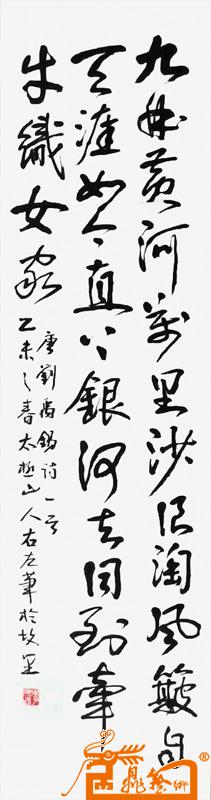 九曲黄河万里沙浪淘风簸自
天涯如今直上银河去同到牵
牛织女家
唐刘禹锡诗一首
乙未之春太极山人右左笔於